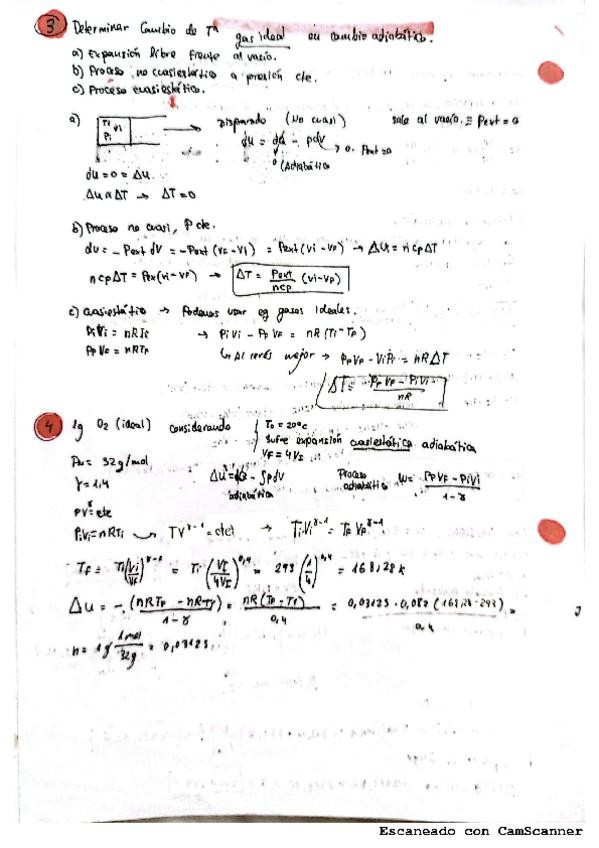 3 Determinar Cambio de Tª gas ideal en cambio adiabático.
a) Expansión libre frente al vacío.
b) Proceso no cuasiestático a presión cte.
c) Proceso cuasiestático.
a) Ti Vi Pi → Disparado (No cuasi) sale al vacío. ≡ Pext = 0
du = dQ - pdV → 0. Pext=0
0 (Adiabático
du = 0 = Δu.
Δu α ΔT → ΔT = 0
b) Proceso no cuasi, P cte.
du = - Pext dV = - Pext (VF - Vi) = Pext (Vi - VF) → Δu = ncpΔT
ncpΔT = Pex(Vi - VF) → ΔT = Pext/ncp (Vi - VF)
c) cuasiestático → Podemos usar eg gases ideales.
PiVi = nRTi → PiVi - PFVF = nR(Ti - TF)
PFVF = nRTF ↳ Al revés mejor → PFVF - ViPi = nRΔT
ΔT = PFVF - PiVi / nR
4 1g O2 (ideal) considerando T0 = 20ºc
Sufre expansión cuasiestática adiabática
VF = 4VI
= 32g/mol
γ = 1,4
Δu = - ∫pdV
adiabática
Proceso adiabático W = PFVF - PiVi / 1-γ
PVγ = cte
PiVi = nRTi → TVγ-1 = cte → TiViγ-1 = TFVFγ-1
TF = Ti(Vi/VF)γ-1 = Ti(VI/4VI)0,4 = 293(1/4)0,4 = 168,28 k
Δu = - (nRTF - nRTi)/1-γ = nR(TF - Ti)/0,4 = 0,03125 · 0,082 (168,28 - 293)/0,4 = J
n = 1g 1mol/32g = 0,03125.
Escaneado con CamScanner